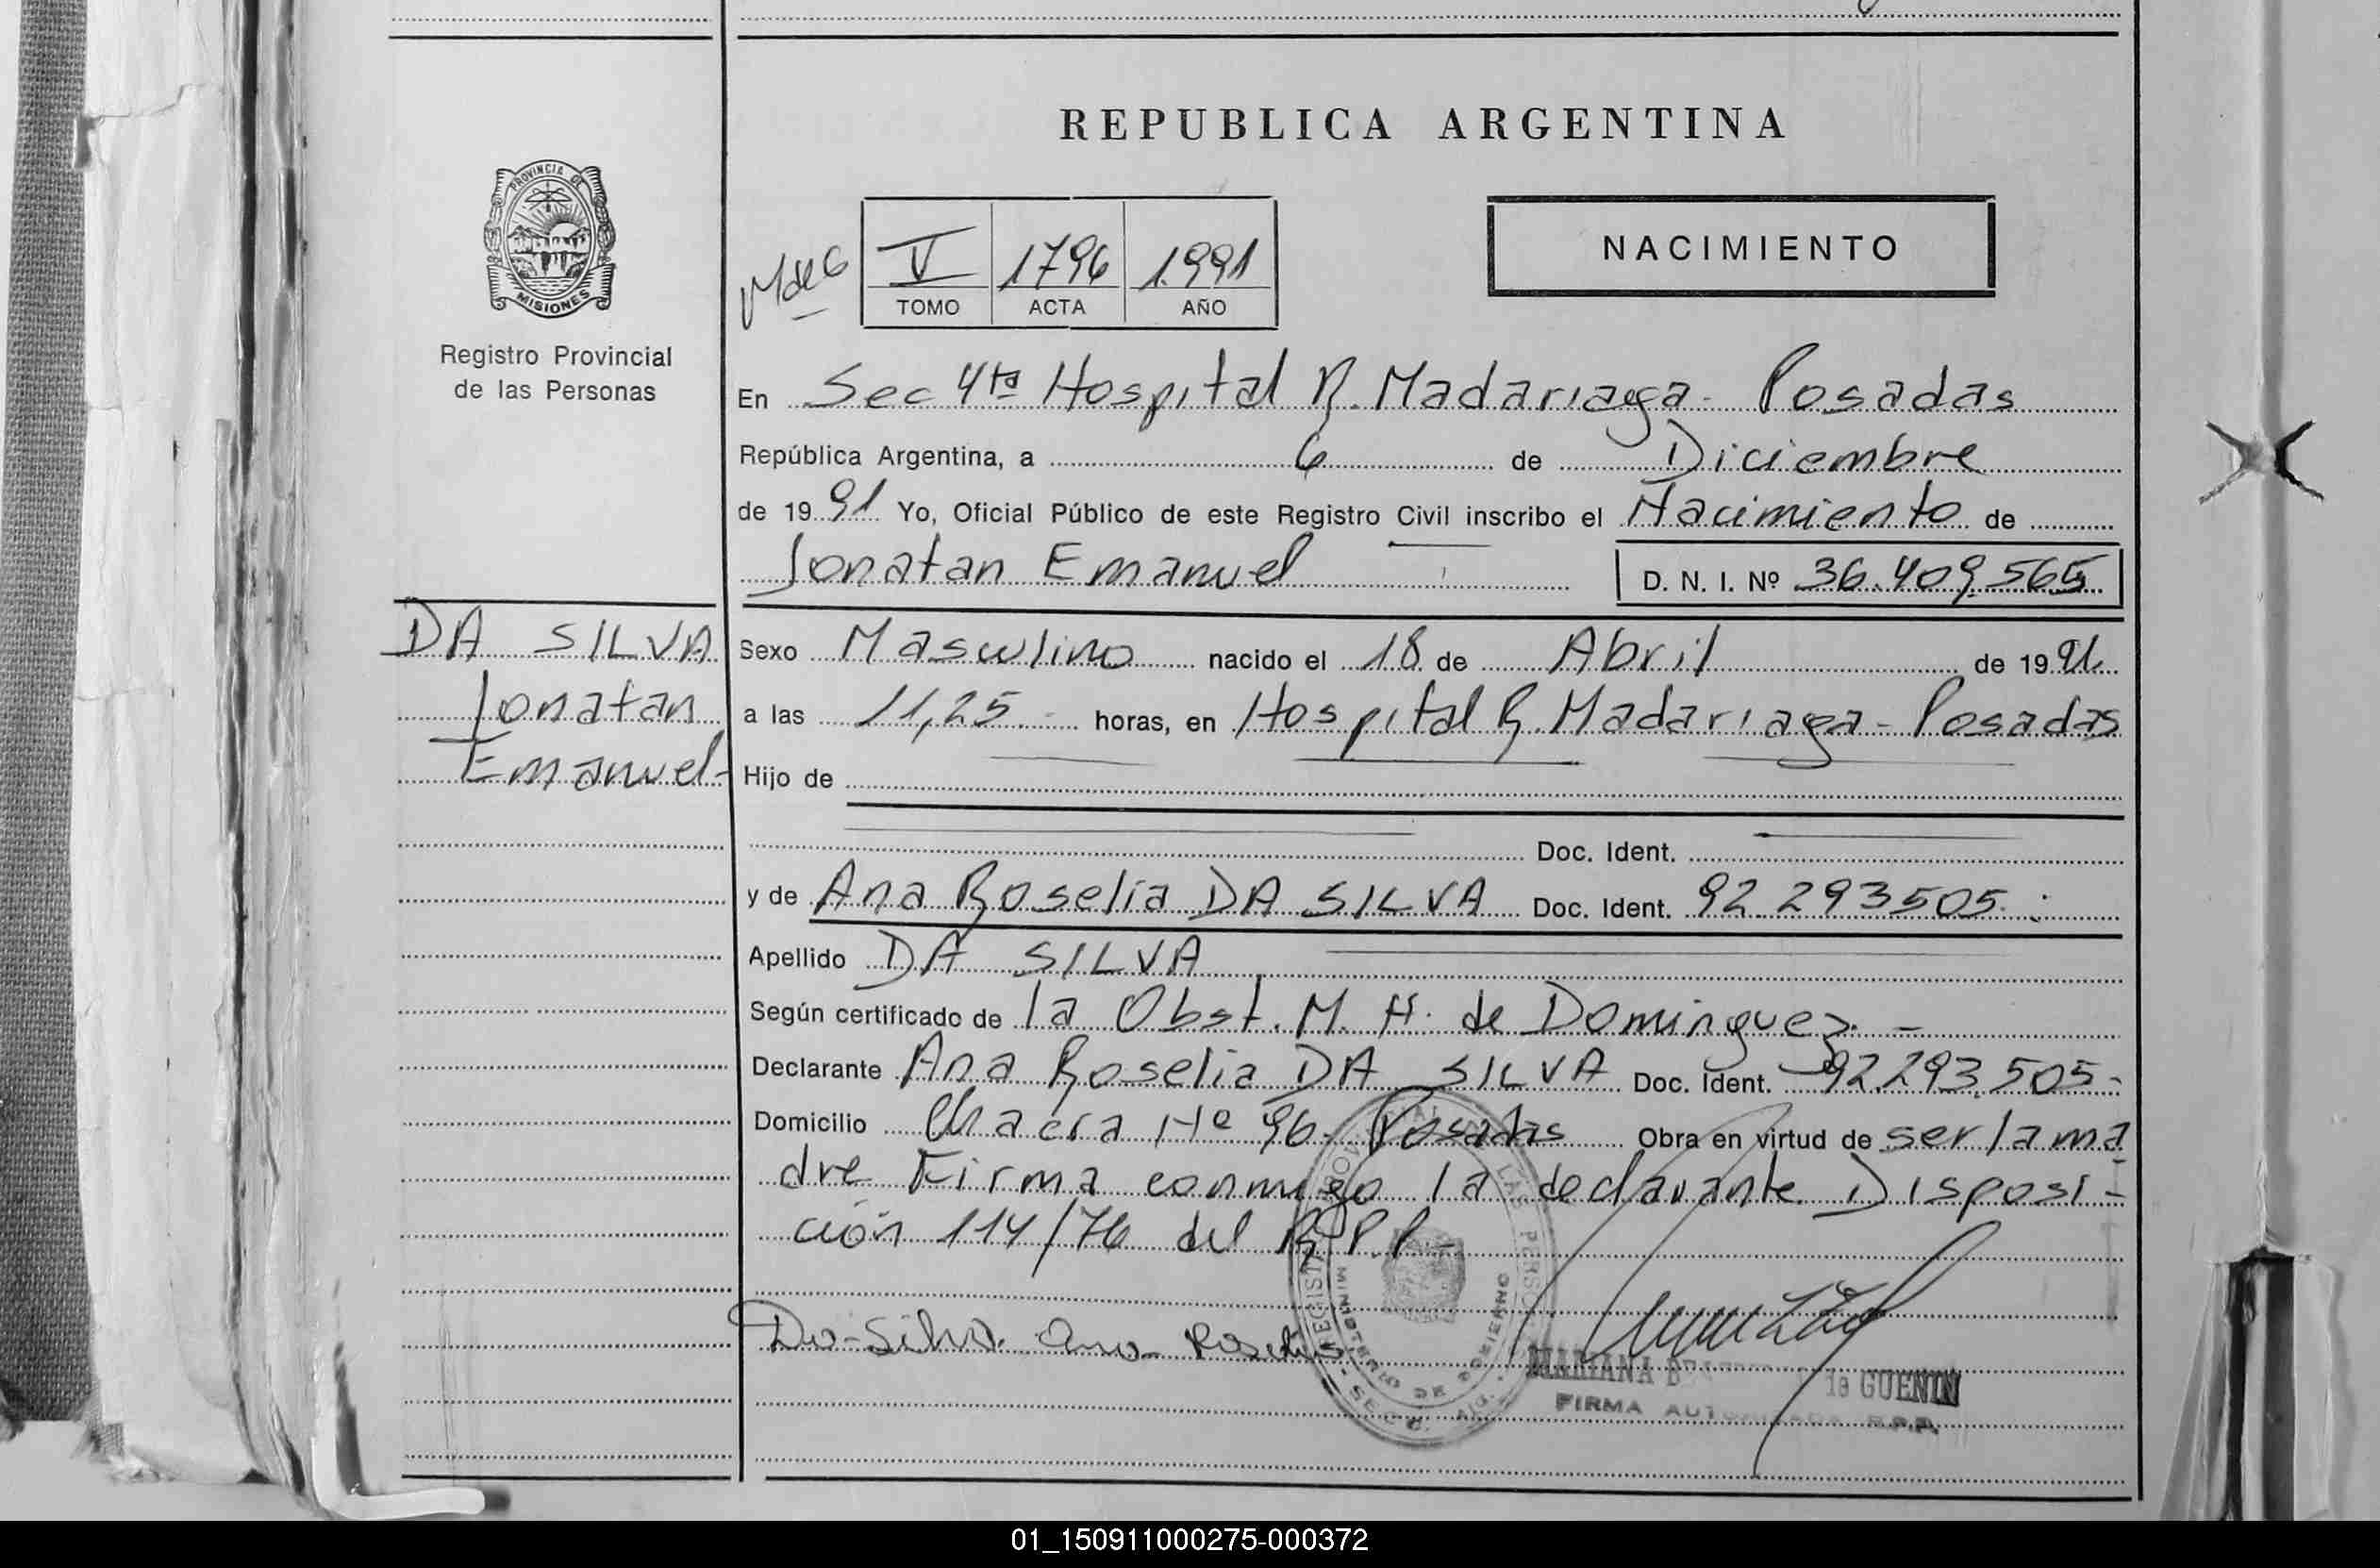 REPUBLICA ARGENTINA
PROVINCIA DE
MISIONES
Registro Provincial
de las Personas
V 1796 1.991
TOMO ACTA AÑO
NACIMIENTO
En Sec 4ta Hospital R. Madariaga - Posadas
República Argentina, a 6 de Diciembre
de 1991 Yo, Oficial Público de este Registro Civil inscribo el Nacimiento de
Jonatan Emanuel D. N. I. Nº 36.409.565
DA SILVA
Jonatan
Emanuel-
Sexo Masculino nacido el 18 de Abril de 1991.
a las 11,25 - horas, en Hospital R. Madariaga - Posadas
Hijo de
Doc. Ident.
y de Ana Roselia DA SILVA Doc. Ident. 92.293505.
Apellido DA SILVA
Según certificado de la Obst. M. H. de Dominguez. -
Declarante Ana Roselia DA SILVA Doc. Ident. 92.293.505-
Domicilio Chacra Nº 96- Posadas Obra en virtud de ser la ma
dre Firma conmigo la declarante Disposi-
ción 114/76 del R.P.P-
Da Silva Ana Roselia
MINISTERIO DE GOBIERNO
MARIANA de GUENIN
FIRMA AUTORIZADA R.P.P.
01_150911000275-000372